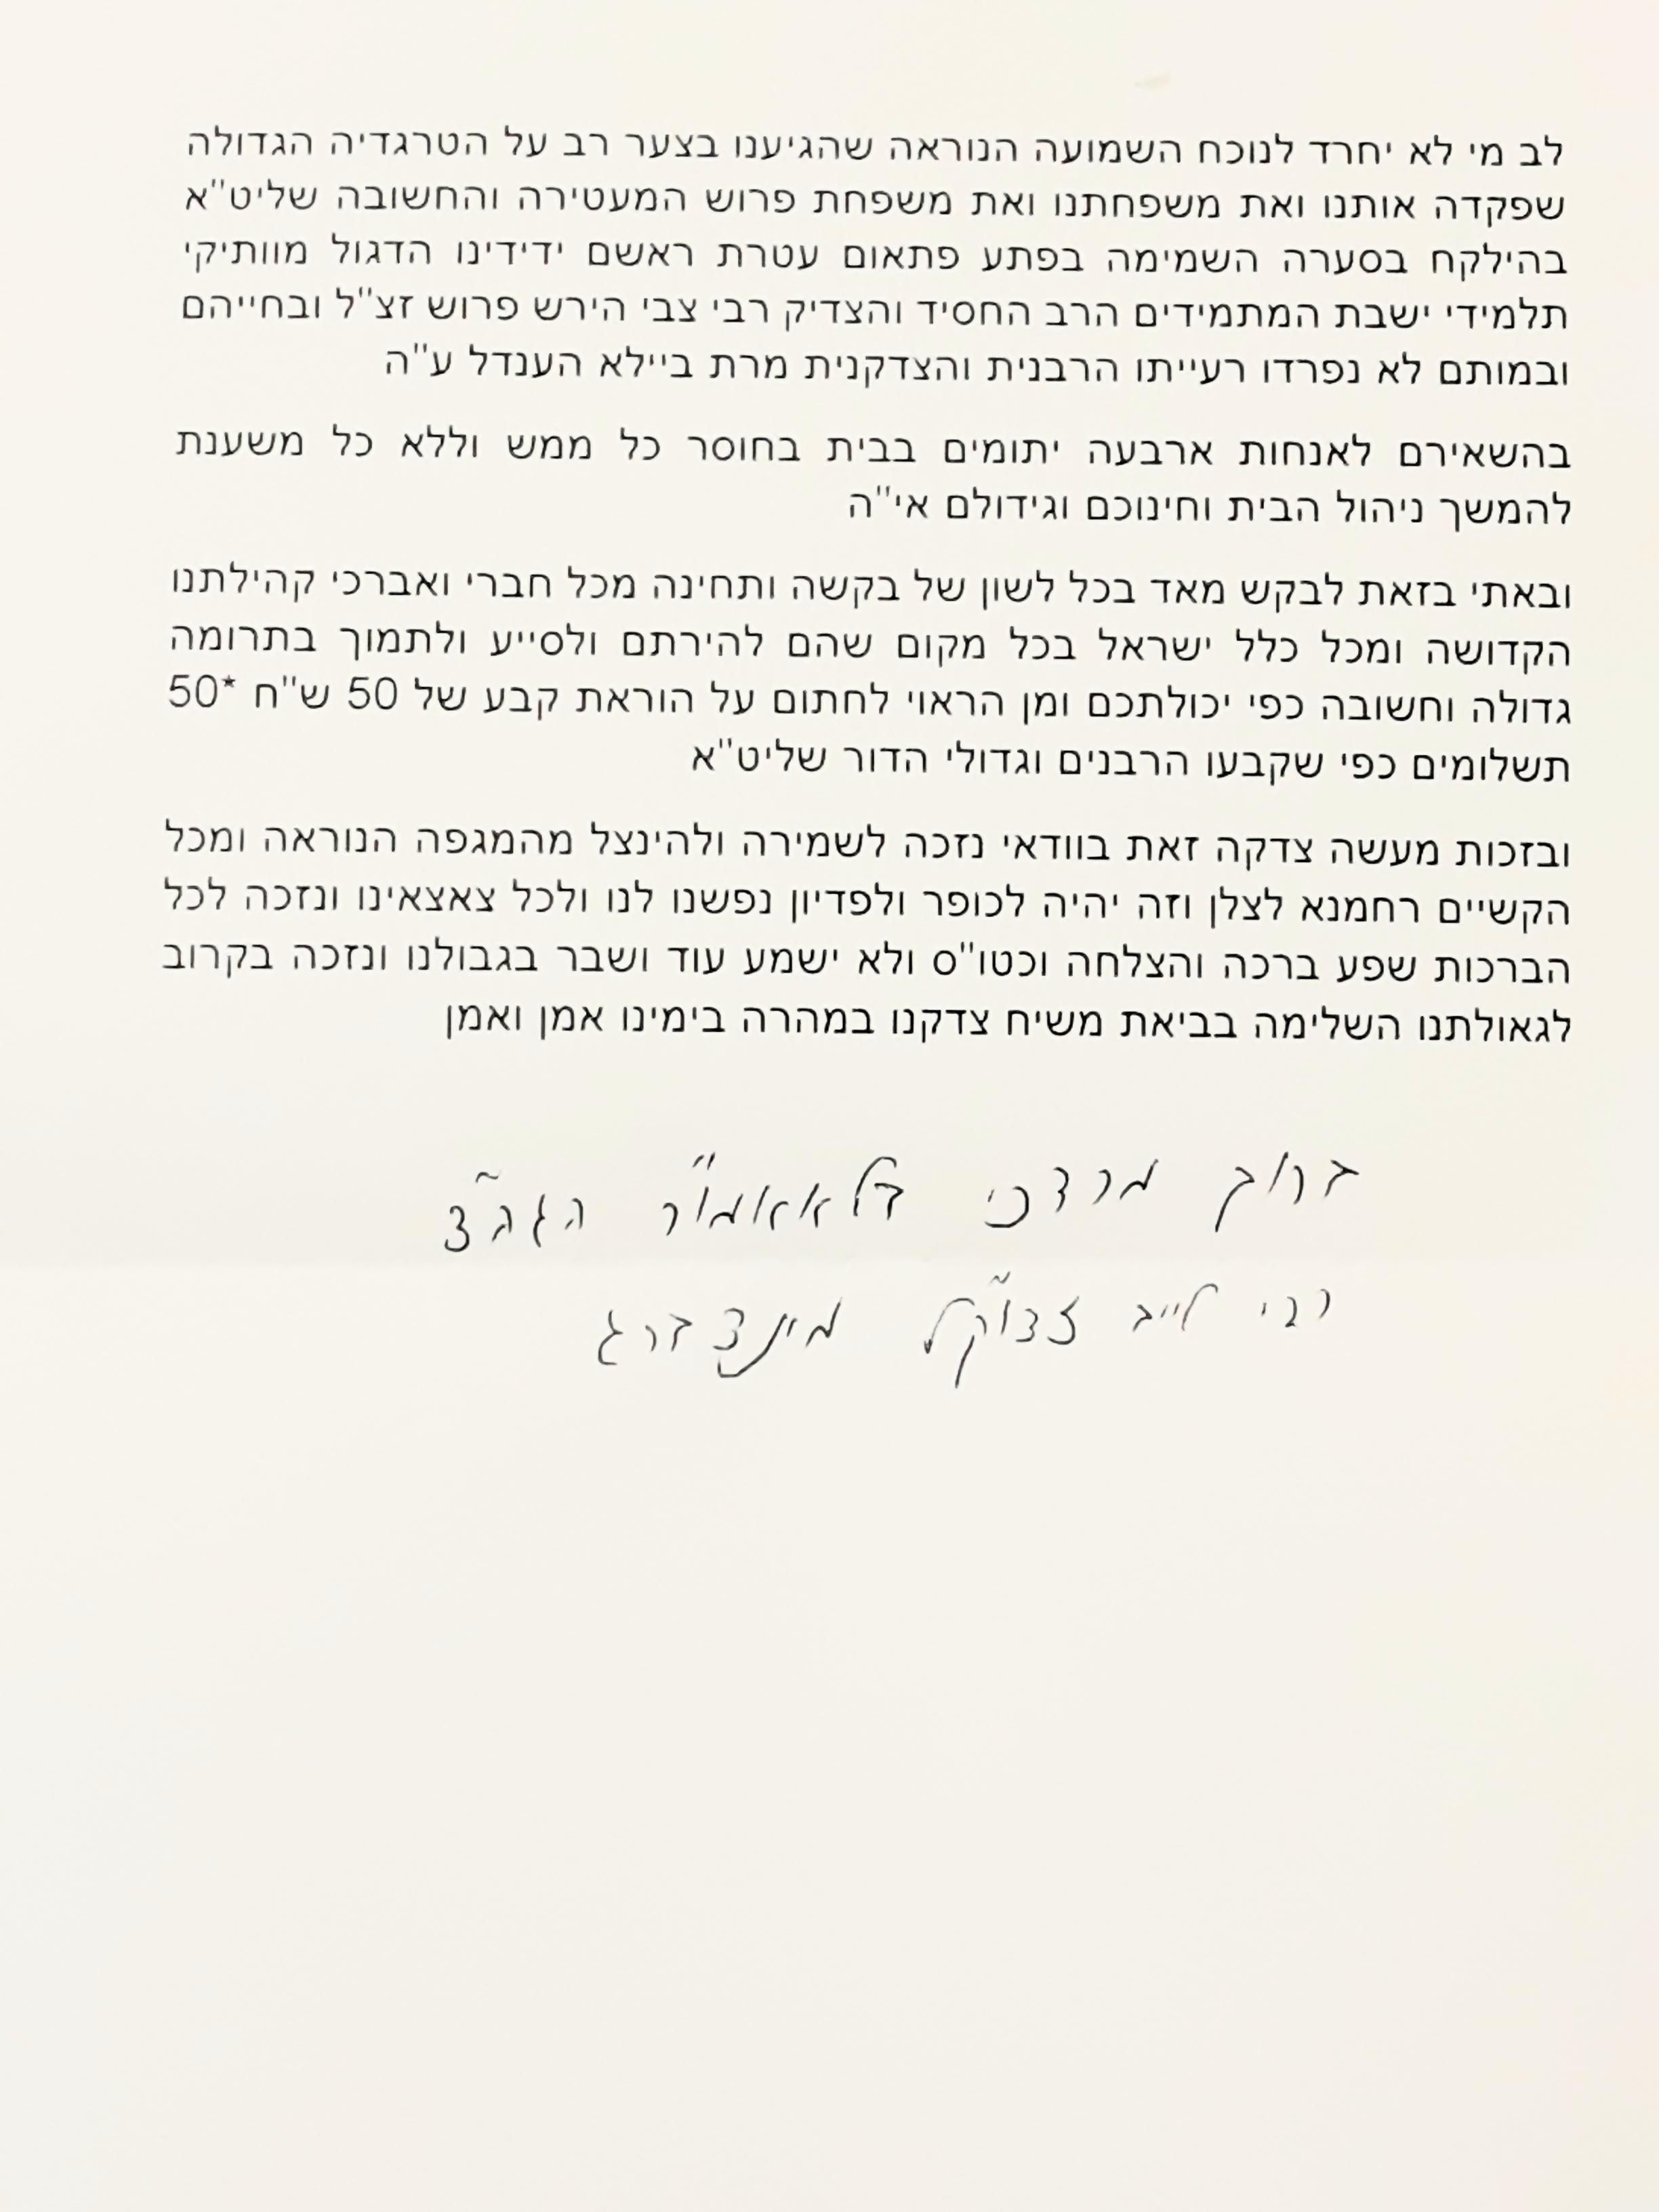 לב מי לא יחרד לנוכח השמועה הנוראה שהגיענו בצער רב על הטרגדיה הגדולה
שפקדה אותנו ואת משפחתנו ואת משפחת פרוש המעטירה והחשובה שליט"א
בהילקח בסערה השמימה בפתע פתאום עטרת ראשם ידידינו הדגול מוותיקי
תלמידי ישבת המתמידים הרב החסיד והצדיק רבי צבי הירש פרוש זצ"ל ובחייהם
ובמותם לא נפרדו רעייתו הרבנית והצדקנית מרת ביילא הענדל ע"ה
בהשאירם לאנחות ארבעה יתומים בבית בחוסר כל ממש וללא כל משענת
להמשך ניהול הבית וחינוכם וגידולם אי"ה
ובאתי בזאת לבקש מאד בכל לשון של בקשה ותחינה מכל חברי ואברכי קהילתנו
הקדושה ומכל כלל ישראל בכל מקום שהם להירתם ולסייע ולתמוך בתרומה
גדולה וחשובה כפי יכולתכם ומן הראוי לחתום על הוראת קבע של 50 ש"ח *50
תשלומים כפי שקבעו הרבנים וגדולי הדור שליט"א
ובזכות מעשה צדקה זאת בוודאי נזכה לשמירה ולהינצל מהמגפה הנוראה ומכל
הקשיים רחמנא לצלן וזה יהיה לכופר ולפדיון נפשנו לנו ולכל צאצאינו ונזכה לכל
הברכות שפע ברכה והצלחה וכטו"ס ולא ישמע עוד ושבר בגבולנו ונזכה בקרוב
לגאולתנו השלימה בביאת משיח צדקנו במהרה בימינו אמן ואמן
ברוך מרדכי בלאאמו"ר הגה"צ
רבי לייב זצוק"ל מינצברג